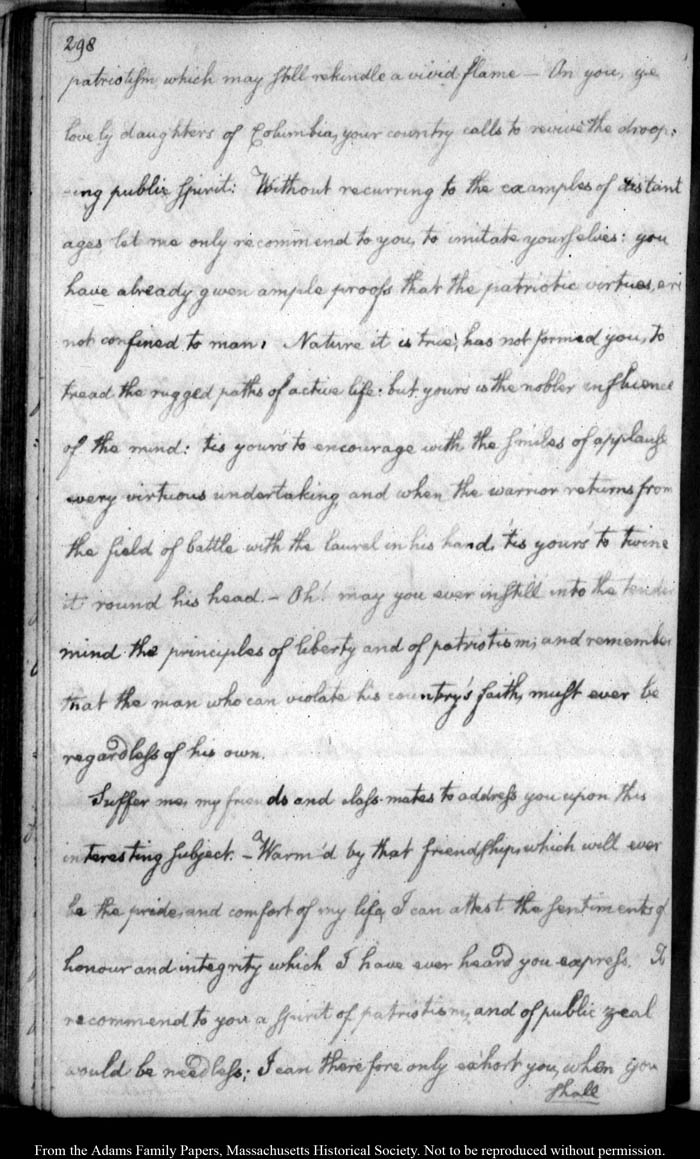 298
patriotism which may still rekindle a vivid flame — On you, ye
lovely daughters of Columbia, your country calls to revive the droop:
-ing public spirit: Without recurring to the examples of distant
ages let me only recommend to you, to imitate yourselves: you
have already given ample proofs that the patriotic virtues, are
not confined to man. Nature it is true, has not formed you, to
tread the rugged paths of active life: but yours is the nobler influence
of the mind: tis yours to encourage with the smiles of applause
every virtuous undertaking, and when the warrior returns from
the field of battle with the laurel in his hand, 'tis yours to twine
it round his head. — Oh! may you ever instill into the tender
mind the principles of liberty and of patriotism; and remember
that the man who can violate his country's faith, must ever be
regardless of his own.
Suffer me, my friends and class-mates to address you upon this
interesting subject. — Warm'd by that friendship, which will ever
be the pride, and comfort of my life, I can attest the sentiments of
honour and integrity which I have ever heard you express. To
recommend to you a spirit of patriotism, and of public zeal
would be needless; I can therefore only exhort you, when you
shall
From the Adams Family Papers, Massachusetts Historical Society. Not to be reproduced without permission.